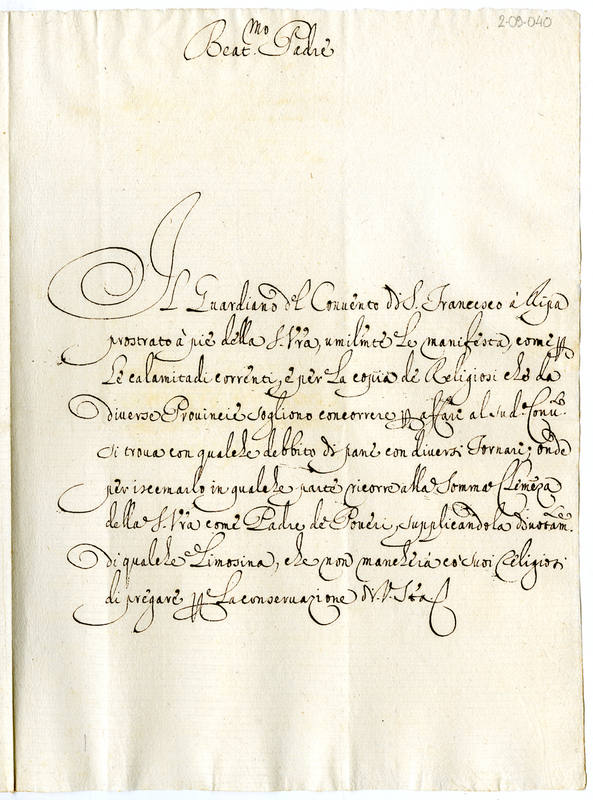 2-09-040
Beat.mo Padre
Il Guardiano del Convento di S. Francesco à Ripa
prostrato à pie della S. Vra, umilmte Le manifesta, come p
Le calamitadi correnti, e per La copia de Religiosi che da
diverse Provincie sogliono concorrere p affare al sud.o Conv.to
si trova con qualche debbito di pane con diversi Fornari; onde
per iscemarlo in qualche parte ricorre alla Somma Clemeza
della S. Vra come Padre de Poveri, supplicandola divotam.te
di qualche Limosina, che non mancherà co suoi Religiosi
di pregare p La conservazione di V. Sta